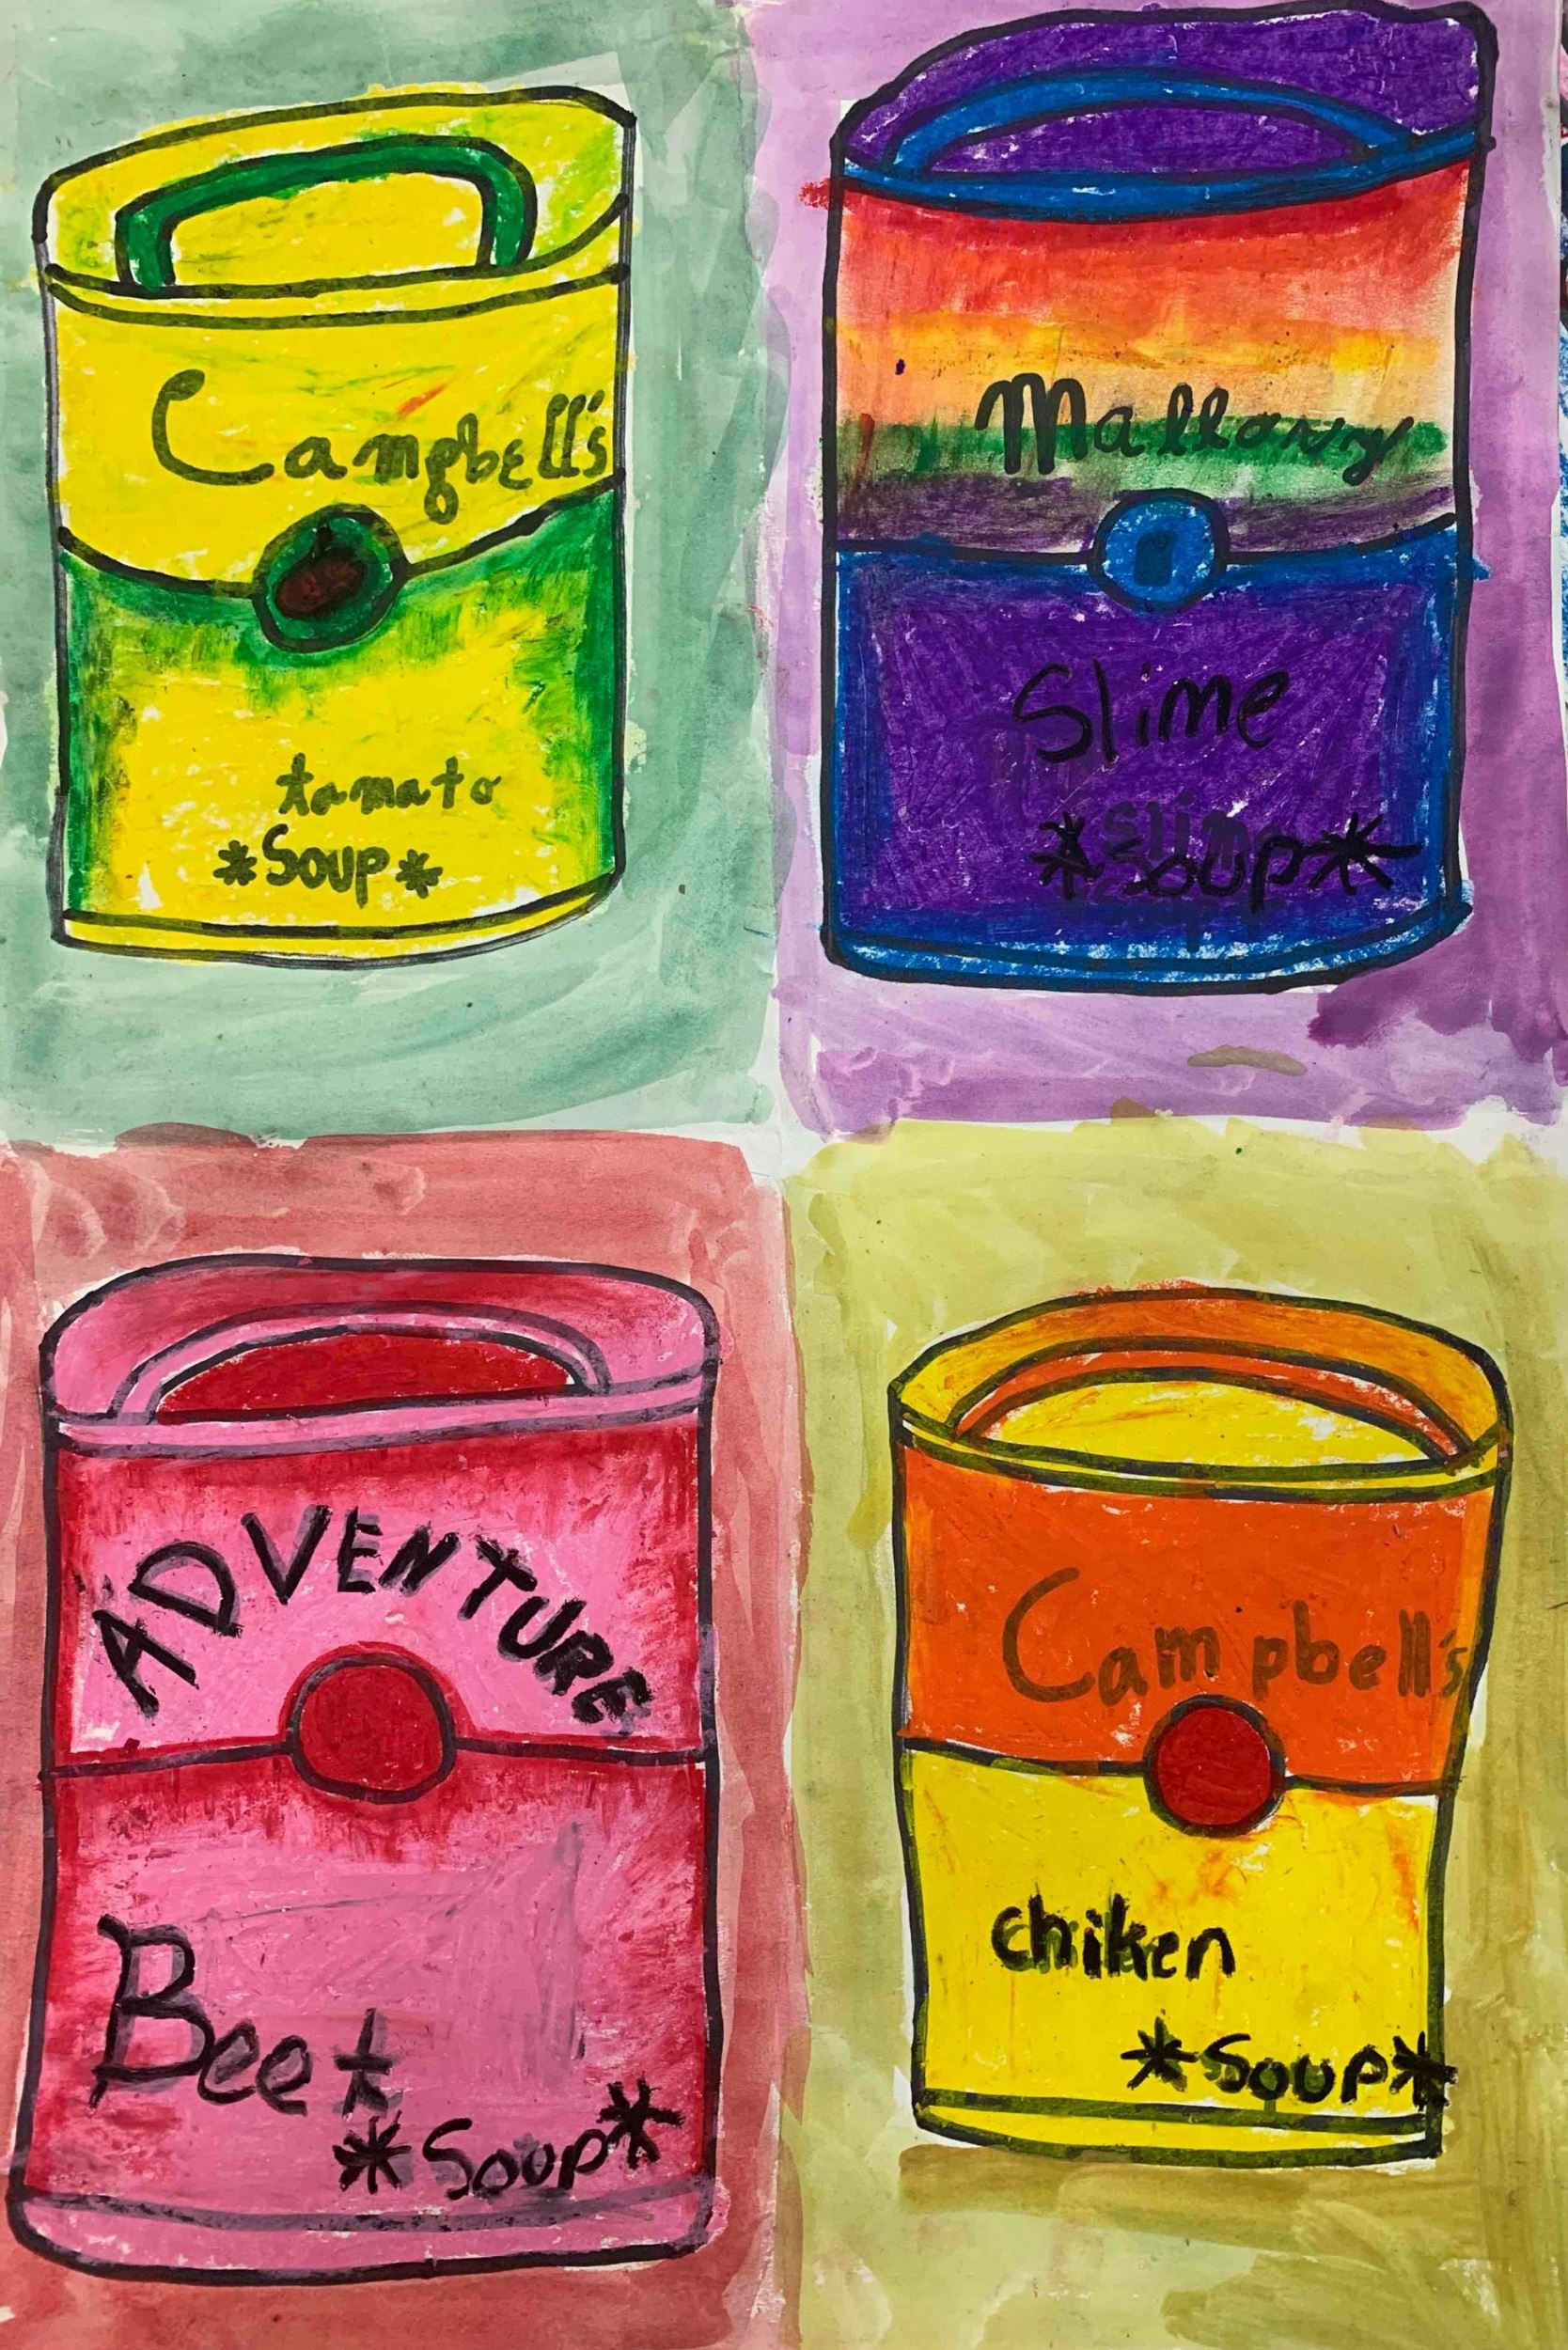 Campbell's
tomato
*Soup*
Mallory
Slime
*Soup*
ADVENTURE
Beet
*Soup*
Campbell's
chiken
*Soup*